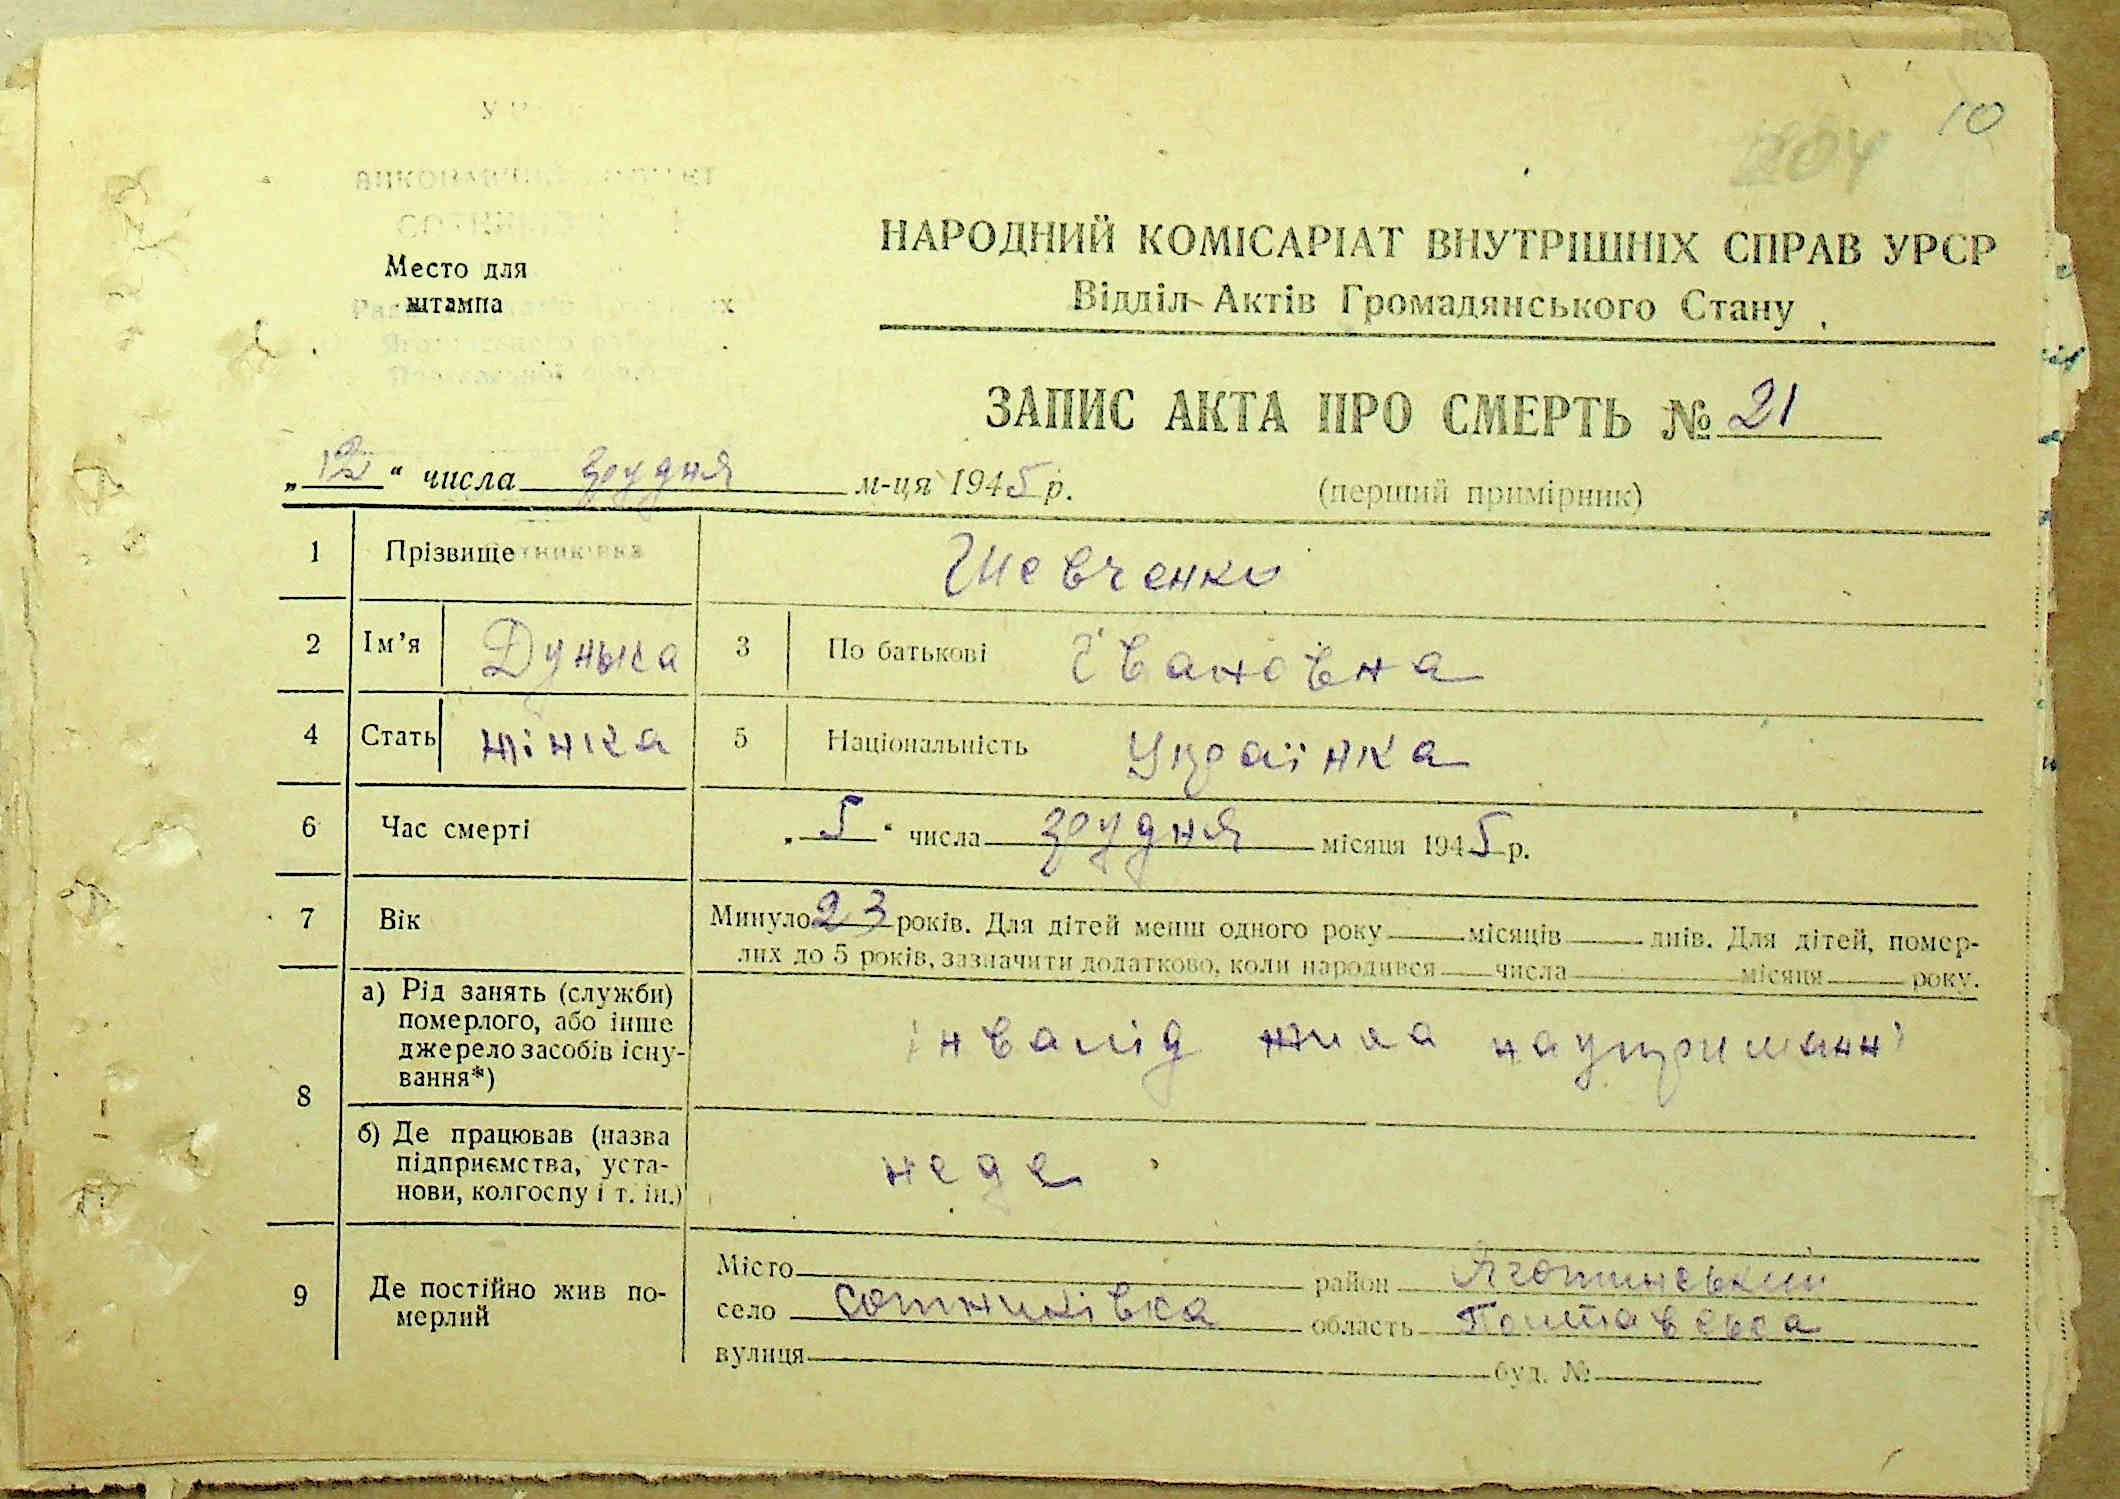 10
204
Место для
штампа
НАРОДНИЙ КОМІСАРІАТ ВНУТРІШНІХ СПРАВ УРСР
Відділ Актів Громадянського Стану
ЗАПИС АКТА ПРО СМЕРТЬ № 21
„12“ числа грудня м-ця 1945 р.
(перший примірник)
1 Прізвище Шевченко
2 Ім’я Дунька 3 По батькові Івановна
4 Стать жінка 5 Національність Українка
6 Час смерті „5“ числа грудня місяця 1945 р.
7 Вік Минуло 23 років. Для дітей менш одного року місяців днів. Для дітей, помер-
лих до 5 років, зазначити додатково, коли народився числа місяця року.
8 а) Рід занять (служби)
померлого, або інше
джерело засобів існу-
вання*)
інвалід жила наутриманні
б) Де працював (назва
підприємства, уста-
нови, колгоспу і т. ін.)
неде
9 Де постійно жив по-
мерлий
Місто район Яготинський
село Сотниківка область Полтавська
вулиця буд. №